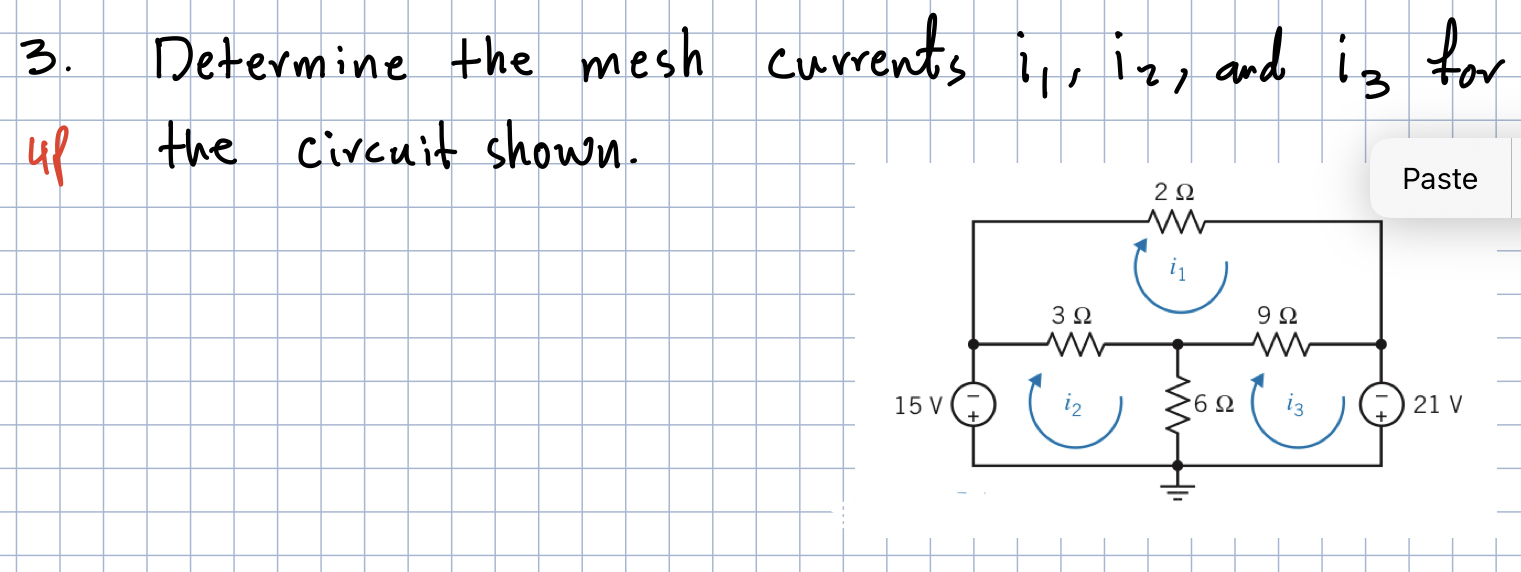 3. Determine the mesh currents i₁, i₂, and i₃ for
4p the circuit shown.
Paste
2 Ω
i₁
3 Ω
9 Ω
15 V
−
+
i₂
6 Ω
i₃
−
+
21 V